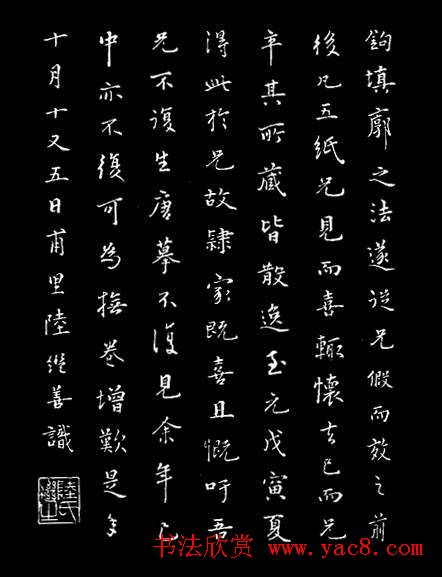 鉤填廓之法遂從兄假而效之前
後凡五紙兄見而喜輒懷去已而兄
卒其所藏皆散逸至元戊寅夏
得此於兄故隸家既喜且慨吁吾
兄不復生唐摹不復見余年已
中亦不復可為撫卷增歎是年
十月十又五日甫里陸繼善識
书法欣赏 www.yac8.com